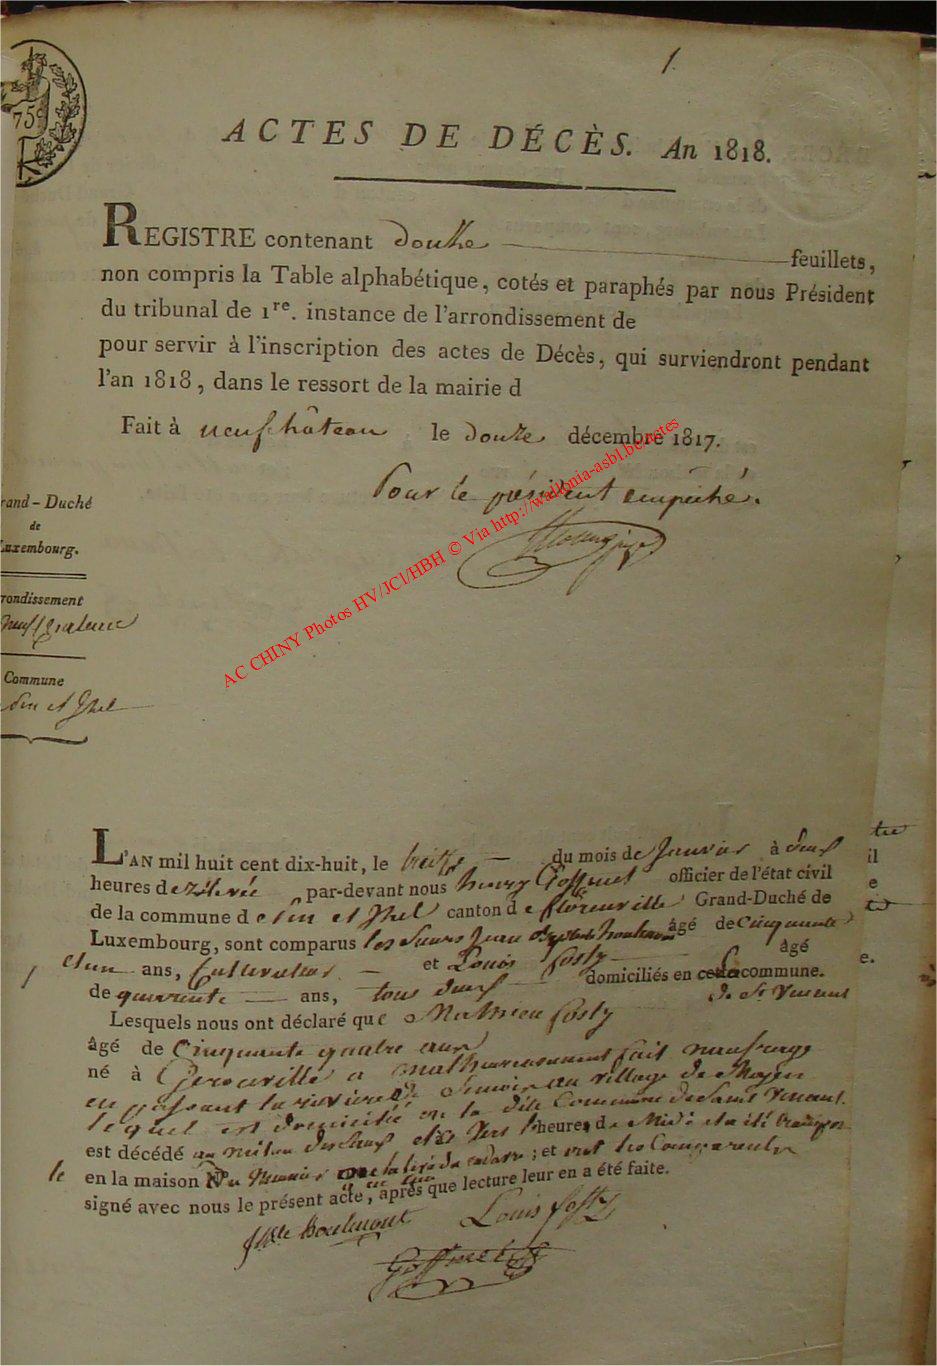 1.
75
ACTES DE DÉCÈS. An 1818.
REGISTRE contenant douze feuillets,
non compris la Table alphabétique, cotés et paraphés par nous Président
du tribunal de 1re. instance de l'arrondissement de
pour servir à l'inscription des actes de Décès, qui surviendront pendant
l'an 1818, dans le ressort de la mairie d
Fait à neufchâteau le douze décembre 1817.
Pour le président empêché.
AC CHINY Photos HV/JCl/HBH © Via http://wallonia-asbl.be/actes
rand-Duché
de
Luxembourg.
rondissement
Commune
et Jzel
L'AN mil huit cent dix-huit, le treize du mois de Janvier à deux
heures de relevée par-devant nous henry Goffinet officier de l'état civil
de la commune d et Jzel canton de florenville Grand-Duché de
Luxembourg, sont comparus les Sieurs Jean âgé de Cinquante
et un ans, Cultivateur et Louis fosty âgé
de quarante ans, tous deux domiciliés en cette commune.
de St Vincent
Lesquels nous ont déclaré que Mathieu fosty
âgé de Cinquante quatre ans
né à Gerouville a malheureusement fait naufrage
en passant la rivière de Semois au village de Moyen
lequel est domicilié en la dite Commune de Saint Vincent.
est décédé au milieu des Eaux vers heures de Midi et a été
en la maison du Meunier ; et ont les Comparants
signé avec nous le présent acte, après que lecture leur en a été faite.
Louis fosty
Goffinet